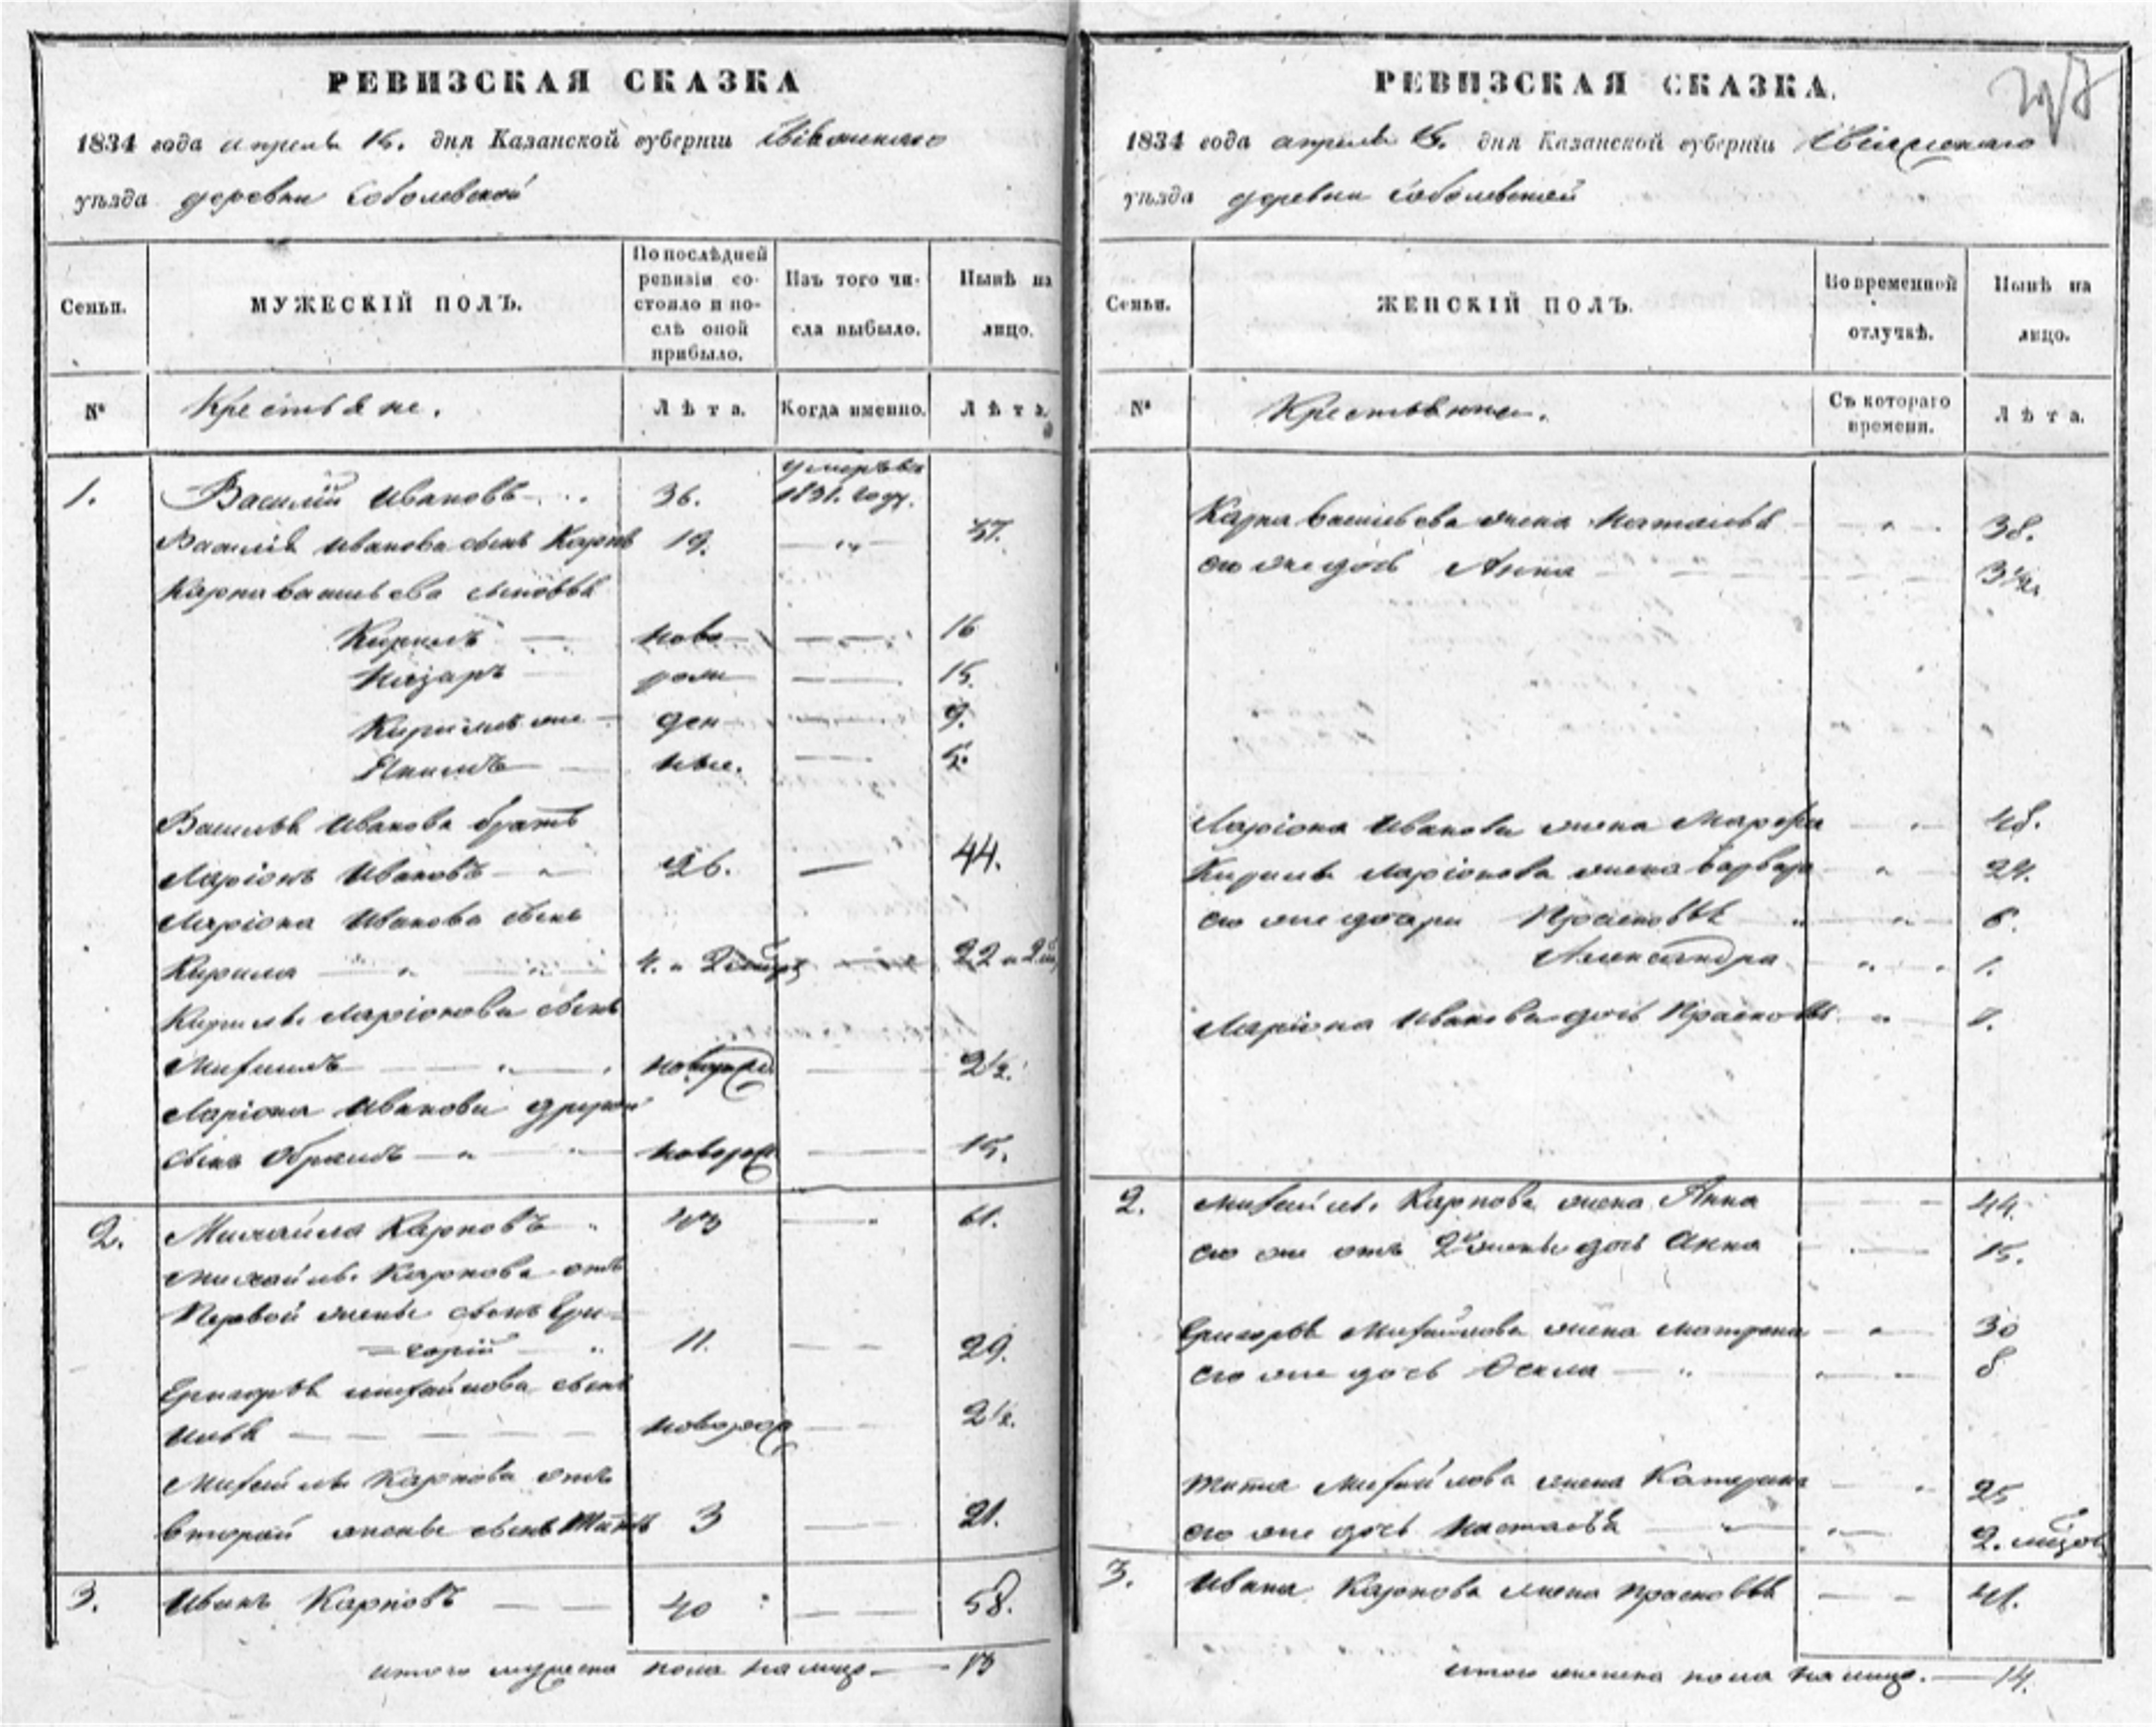 РЕВИЗСКАЯ СКАЗКА
1834 года апреля дня Казанской губерніи
уѣзда деревни Соболевской
Семьи.
МУЖЕСКІЙ ПОЛЪ.
По послѣдней ревизіи со-
стояло и по-
слѣ оной
прибыло.
Изъ того чи-
сла выбыло.
Нынѣ на
лицо.
№
Крестьяне.
Лѣта.
Когда именно.
Лѣта.
1. Василій Ивановъ 36. умеръ въ 1831. году.
Василія Иванова сынъ Карпъ 19. 37.
Карпа Васильева сыновья
Кирилъ ново 16
Назаръ рож 15.
Кирилъ же ден 9.
Якимъ ные. 5.
Василья Иванова братъ
Ларіонъ Ивановъ 26. 44.
Ларіона Иванова сынъ
Кирила 4. и 22 и
Кирилы Ларіонова сынъ
новорож 2 1/2.
Ларіона Иванова другой
сынъ Обрамъ новорож 15.
2. Михайла Карповъ 43 61.
Михайлы Карпова отъ
первой жены сынъ Гри=
=горій 11. 29.
Григорья Михайлова сынъ
Илья новорож 2 1/2.
Михайлы Карпова отъ
второй жены сынъ Титъ 3 21.
3. Иванъ Карповъ 40 58.
итого мужеска пола на лицо 13
РЕВИЗСКАЯ СКАЗКА.
1834 года апреля дня Казанской губерніи
уѣзда деревни Соболевской
Семьи.
ЖЕНСКІЙ ПОЛЪ.
Во временной
отлучкѣ.
Нынѣ на
лицо.
№
Крестьянки.
Съ котораго
времени.
Лѣта.
Карпа Васильева жена Наталья 38.
его же дочь Анна 3 1/2.
Ларіона Иванова жена Марфа 48.
Кирилы Ларіонова жена Варвара 24.
его же дочери Прасковья 6.
Александра 1.
Ларіона Иванова дочь Прасковья
2. Михайлы Карпова жена Анна 44.
его же отъ 2й жены дочь Анна 15.
Григорья Михайлова жена Матрена 30
его же дочь Фекла 8
Тита Михайлова жена Катерина 25
его же дочь Настасья 2.
3. Ивана Карпова жена Прасковья
итого женска пола на лицо. 14.